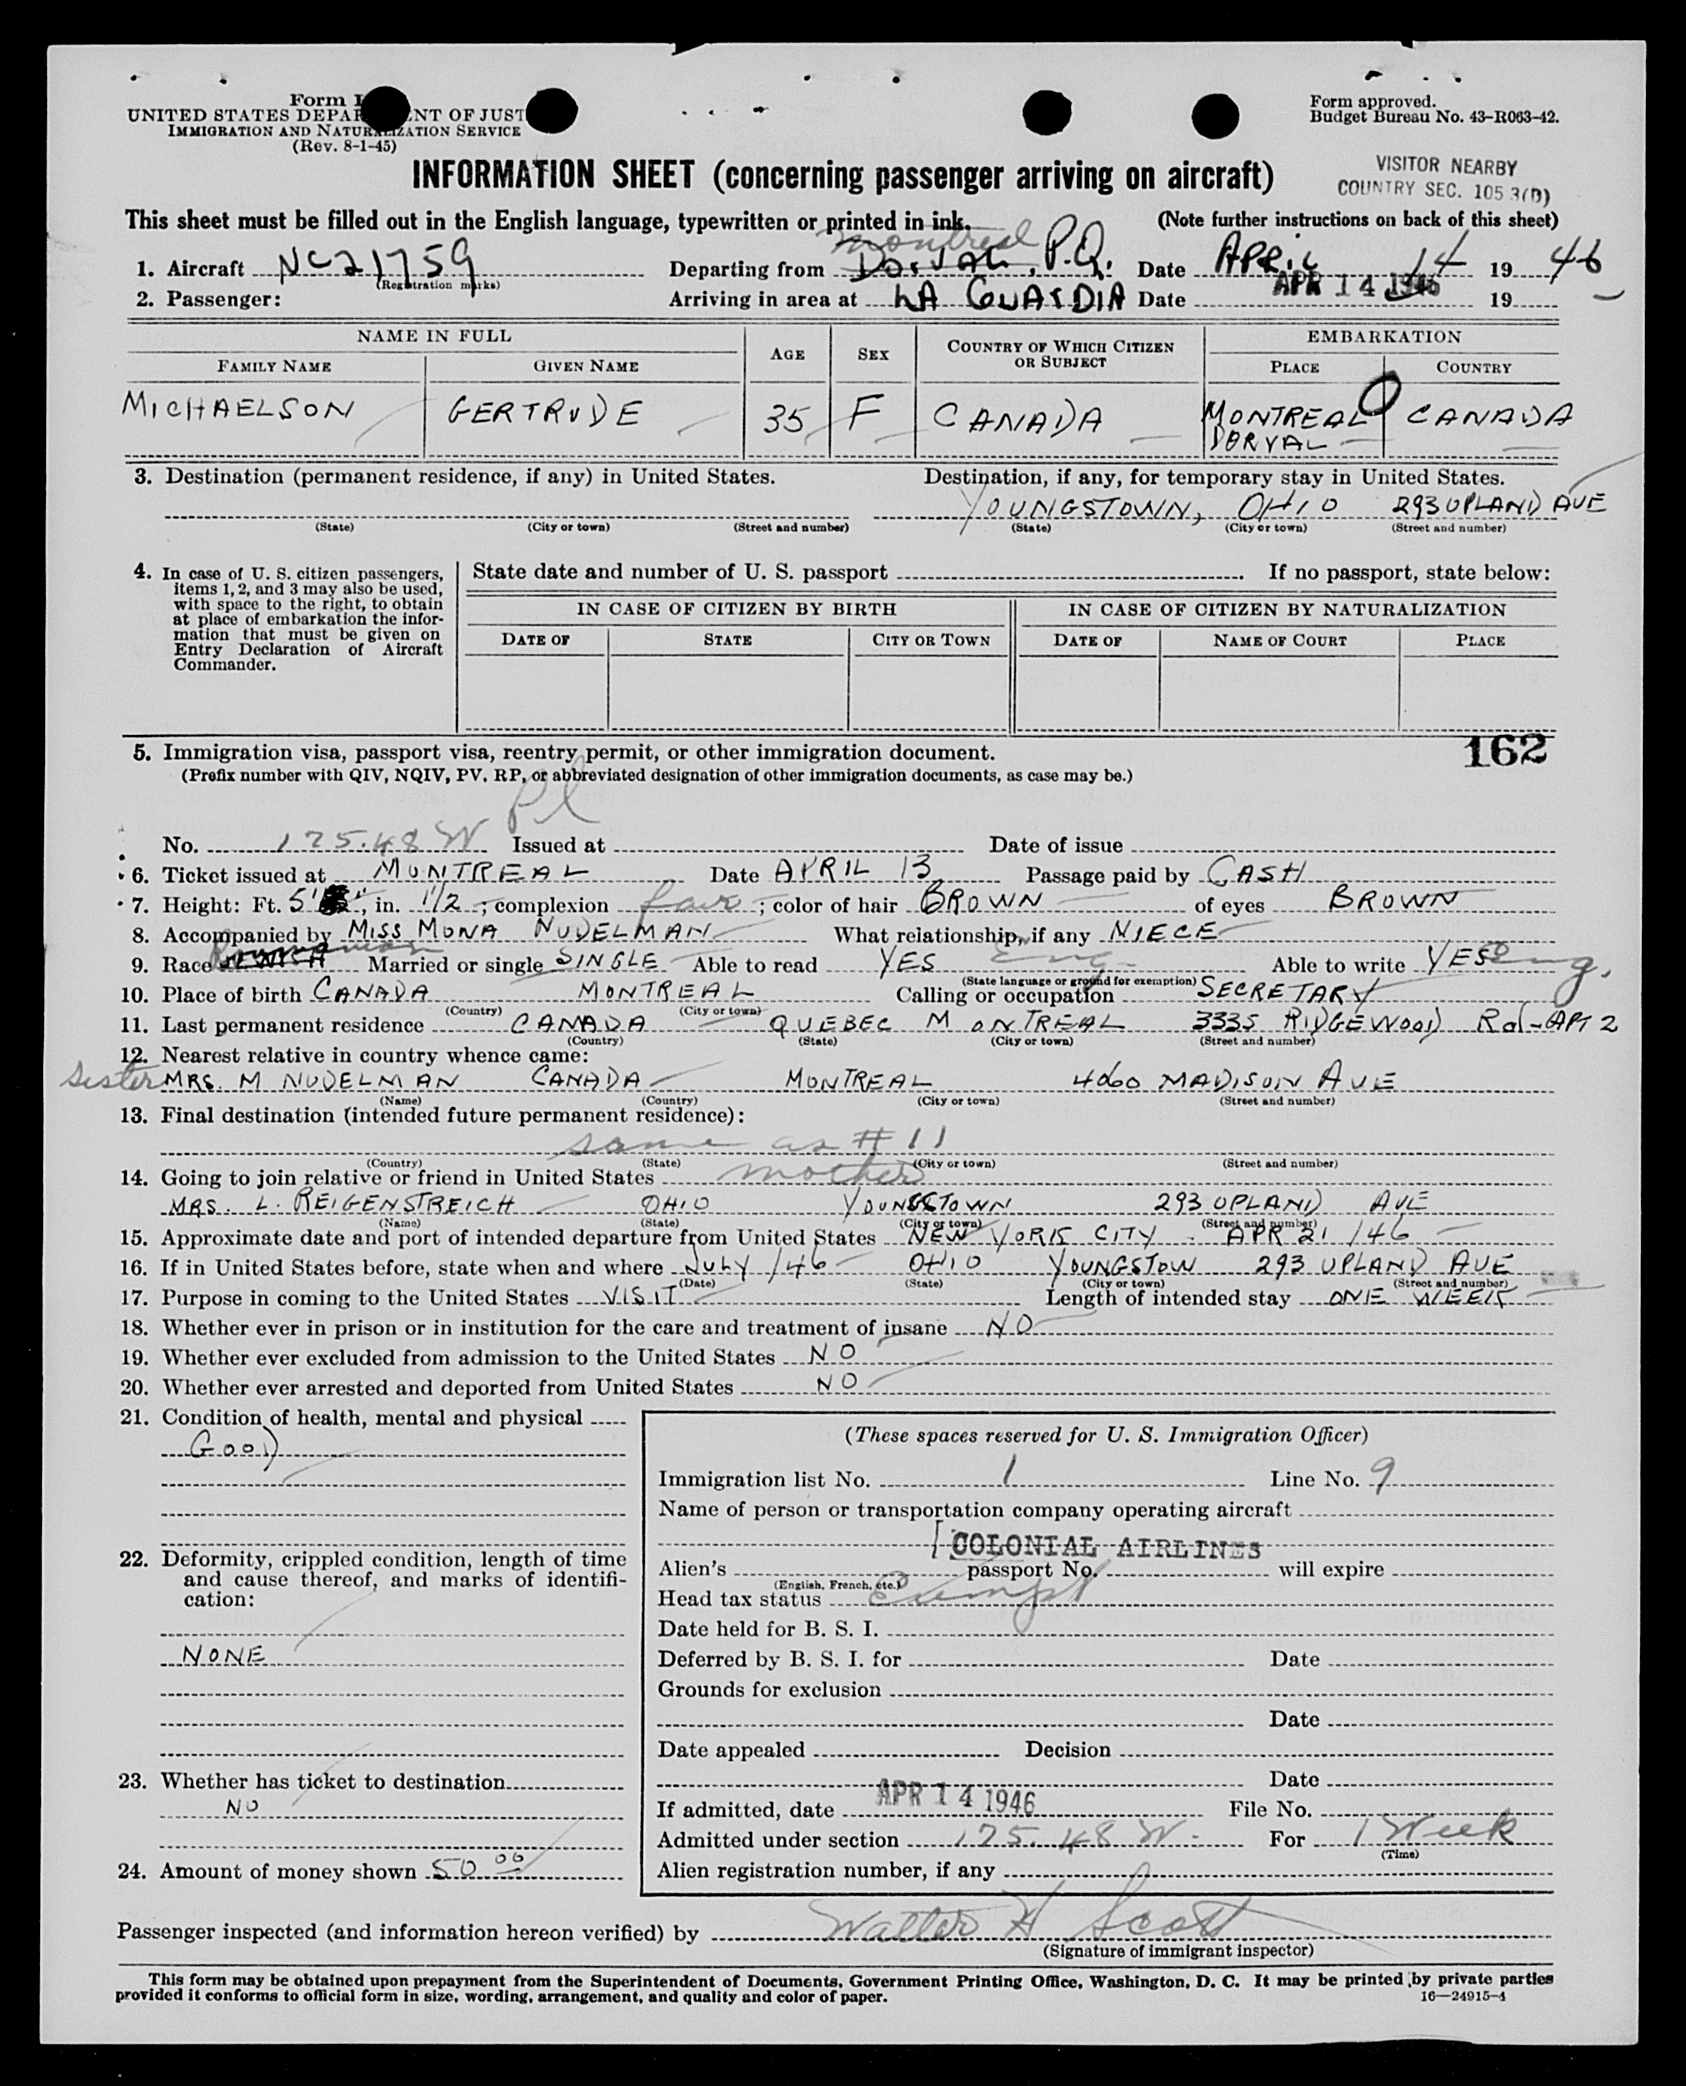 Form I
UNITED STATES DEPA NT OF JUST
IMMIGRATION AND NATURALIZATION SERVICE
(Rev. 8-1-45)
Form approved.
Budget Bureau No. 43-R063-42.
INFORMATION SHEET (concerning passenger arriving on aircraft)
VISITOR NEARBY
COUNTRY SEC. 105 3(D)
This sheet must be filled out in the English language, typewritten or printed in ink. (Note further instructions on back of this sheet)
Montreal
1. Aircraft NC21759 Departing from Dorval, P.Q. Date April 14 1946
(Registration marks)
2. Passenger: Arriving in area at LA GUARDIA Date APR 14 1946 19
NAME IN FULL AGE SEX COUNTRY OF WHICH CITIZEN OR SUBJECT EMBARKATION
FAMILY NAME GIVEN NAME PLACE COUNTRY
MICHAELSON GERTRUDE 35 F CANADA MONTREAL CANADA
DORVAL
3. Destination (permanent residence, if any) in United States. Destination, if any, for temporary stay in United States.
YOUNGSTOWN, OHIO 293 UPLAND AVE
(State) (City or town) (Street and number) (State) (City or town) (Street and number)
4. In case of U. S. citizen passengers, items 1, 2, and 3 may also be used, with space to the right, to obtain at place of embarkation the information that must be given on Entry Declaration of Aircraft Commander.
State date and number of U. S. passport . If no passport, state below:
IN CASE OF CITIZEN BY BIRTH IN CASE OF CITIZEN BY NATURALIZATION
DATE OF STATE CITY OR TOWN DATE OF NAME OF COURT PLACE
5. Immigration visa, passport visa, reentry permit, or other immigration document. 162
(Prefix number with QIV, NQIV, PV, RP, or abbreviated designation of other immigration documents, as case may be.)
No. 175.48 W Issued at Date of issue
6. Ticket issued at MONTREAL Date APRIL 13 Passage paid by CASH
7. Height: Ft. 5' , in. 1 1/2 ; complexion fair ; color of hair BROWN of eyes BROWN
8. Accompanied by MISS MONA NUDELMAN What relationship, if any NIECE
9. Race Married or single SINGLE Able to read YES Eng. Able to write YES Eng.
(State language or ground for exemption)
10. Place of birth CANADA MONTREAL Calling or occupation SECRETARY
(Country) (City or town)
11. Last permanent residence CANADA QUEBEC MONTREAL 3335 RIDGEWOOD Rd-APT 2
(Country) (State) (City or town) (Street and number)
12. Nearest relative in country whence came:
sister MRS. M NUDELMAN CANADA MONTREAL 4060 MADISON AVE
(Name) (Country) (City or town) (Street and number)
13. Final destination (intended future permanent residence):
same as #11
(Country) (State) (City or town) (Street and number)
14. Going to join relative or friend in United States mother
MRS. L. REIGENSTREICH OHIO YOUNGSTOWN 293 UPLAND AVE
(Name) (State) (City or town) (Street and number)
15. Approximate date and port of intended departure from United States NEW YORK CITY - APR 21 /46
16. If in United States before, state when and where JULY /46 OHIO YOUNGSTOW 293 UPLAND AVE
(Date) (State) (City or town) (Street and number)
17. Purpose in coming to the United States VISIT Length of intended stay ONE WEEK
18. Whether ever in prison or in institution for the care and treatment of insane NO
19. Whether ever excluded from admission to the United States NO
20. Whether ever arrested and deported from United States NO
21. Condition of health, mental and physical
GOOD
22. Deformity, crippled condition, length of time and cause thereof, and marks of identification:
NONE
23. Whether has ticket to destination
NO
24. Amount of money shown 50.00
(These spaces reserved for U. S. Immigration Officer)
Immigration list No. 1 Line No. 9
Name of person or transportation company operating aircraft
COLONIAL AIRLINES
Alien's passport No. will expire
(English, French, etc.)
Head tax status Exempt
Date held for B. S. I.
Deferred by B. S. I. for Date
Grounds for exclusion
Date
Date appealed Decision
Date
If admitted, date APR 14 1946 File No.
Admitted under section 175.48 W. For 1 Week
(Time)
Alien registration number, if any
Passenger inspected (and information hereon verified) by Walter H Scott
(Signature of immigrant inspector)
This form may be obtained upon prepayment from the Superintendent of Documents, Government Printing Office, Washington, D. C. It may be printed by private parties
provided it conforms to official form in size, wording, arrangement, and quality and color of paper. 16—24915-4